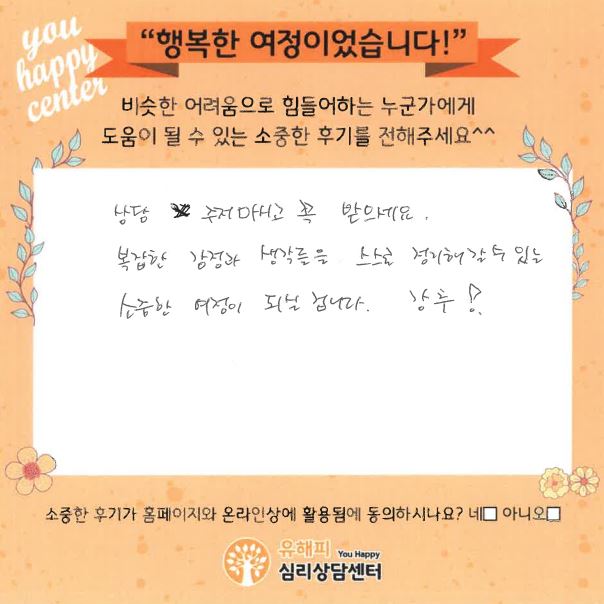 you
happy
center
“행복한 여정이었습니다!”
비슷한 어려움으로 힘들어하는 누군가에게
도움이 될 수 있는 소중한 후기를 전해주세요^^
상담 주저마시고 꼭 받으세요.
복잡한 감정과 생각들을 스스로 정리해갈 수 있는
소중한 여정이 되실 겁니다. 강추!
소중한 후기가 홈페이지와 온라인상에 활용됨에 동의하시나요? 네□ 아니오□
유해피 You Happy
심리상담센터